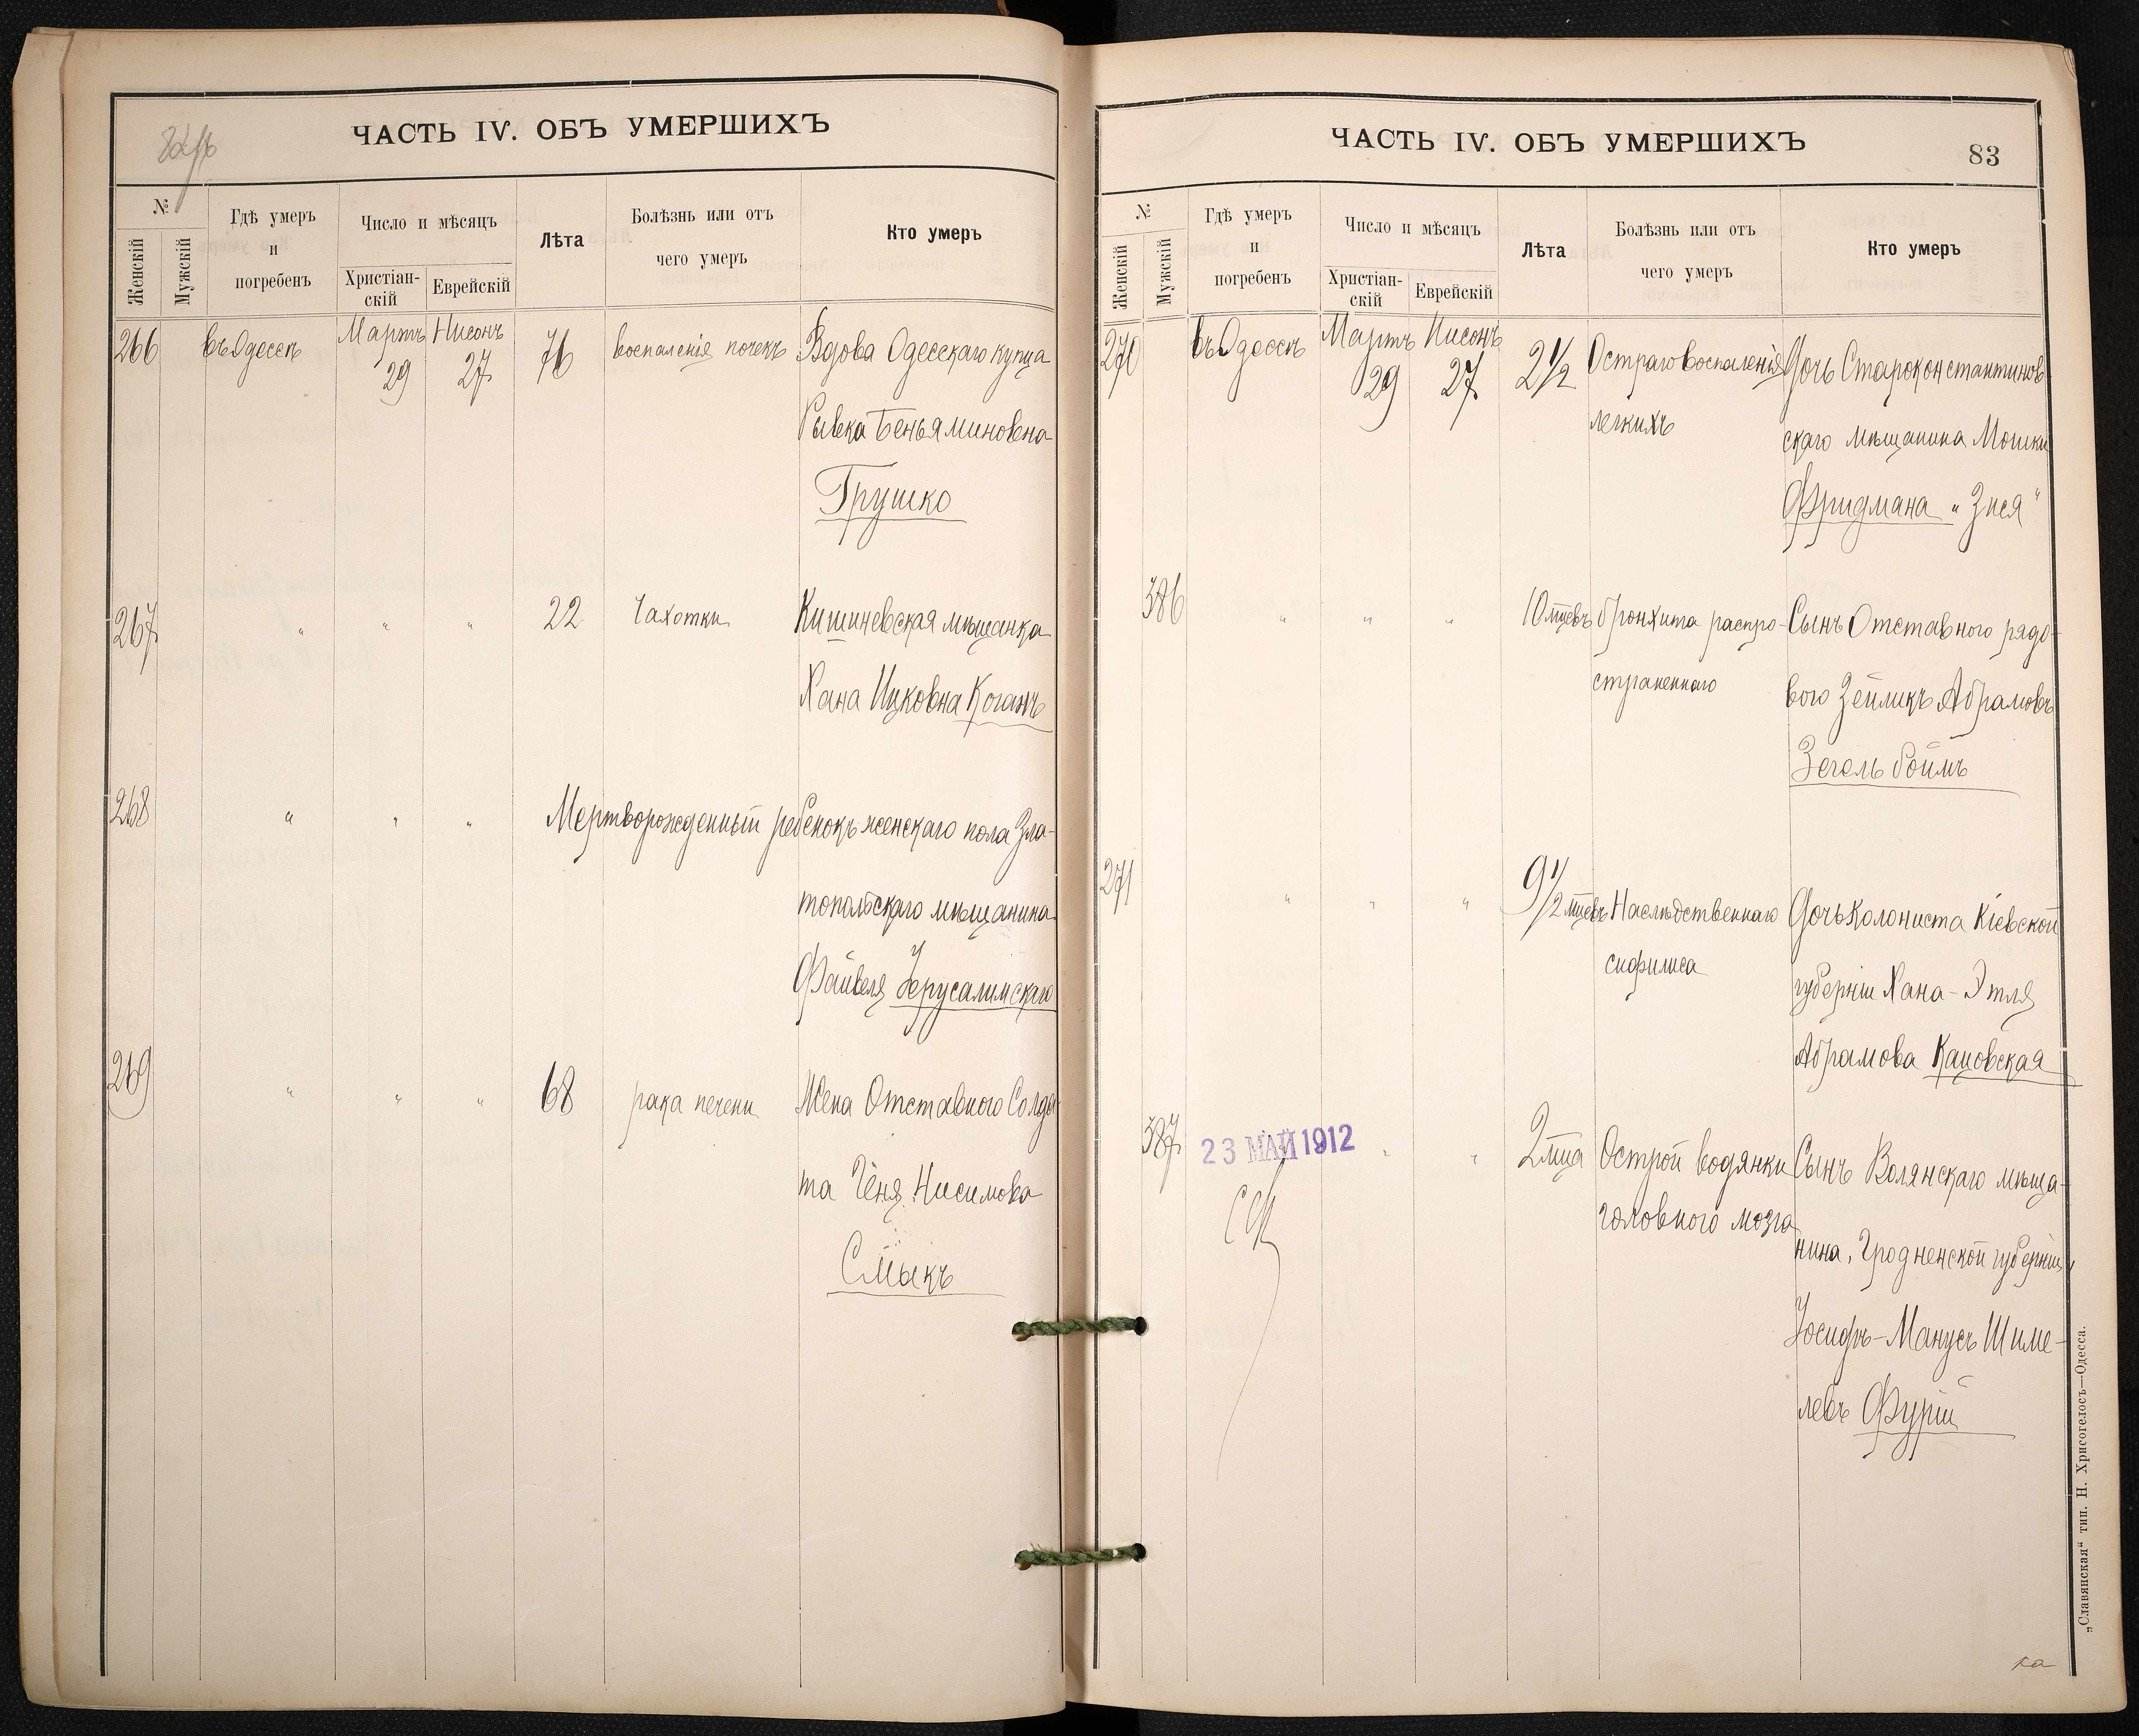 ЧАСТЬ IV. ОБЪ УМЕРШИХЪ
№
Женскій
Мужскій
Гдѣ умеръ
и
погребенъ
Число и мѣсяцъ
Христіан-
скій
Еврейскій
Лѣта
Болѣзнь или отъ
чего умеръ
Кто умеръ
266 въ Одессѣ Мартъ Нисонъ 76 воспаленія почекъ Вдова Одесскаго купца
29 27
Рывка Беньяминовна
Грушко
267 " " " 22 Чахотки Кишиневская мѣщанка
Хана Ицковна Коганъ
268 " " " Мертворожденный ребенокъ женскаго пола Зла-
топольскаго мѣщанина
Файвеля Іерусалимскаго
269 " " " 68 рака печени Жена Отставного Солда-
та Геня Нисимова
Смыкъ
ЧАСТЬ IV. ОБЪ УМЕРШИХЪ
83
№
Женскій
Мужскій
Гдѣ умеръ
и
погребенъ
Число и мѣсяцъ
Христіан-
скій
Еврейскій
Лѣта
Болѣзнь или отъ
чего умеръ
Кто умеръ
270 въ Одессѣ Мартъ Нисонъ 2½ Остраго воспаленія Дочь Староконстантинов-
29 27
легкихъ скаго мѣщанина Мошки
Фридмана „Зися"
386 " " " 10 мцевъ бронхита распро- Сынъ Отставного рядо-
страненнаго вого Зейликъ Абрамовъ
Зегельбоймъ
271 " " " 9½ мцевъ Наслѣдственнаго Дочь Колониста Кіевской
сифилиса губерніи Хана-Этля
Абрамова Кацовская
387 23 МАЙ 1912 " " 2 мца Острой водянки Сынъ Волянскаго мѣща-
головного мозга нина, Гродненской губерніи,
Іосифъ-Манусъ Шиме-
левъ Фурій
„Славянская“ тип. Н. Хрисогелосъ—Одесса.